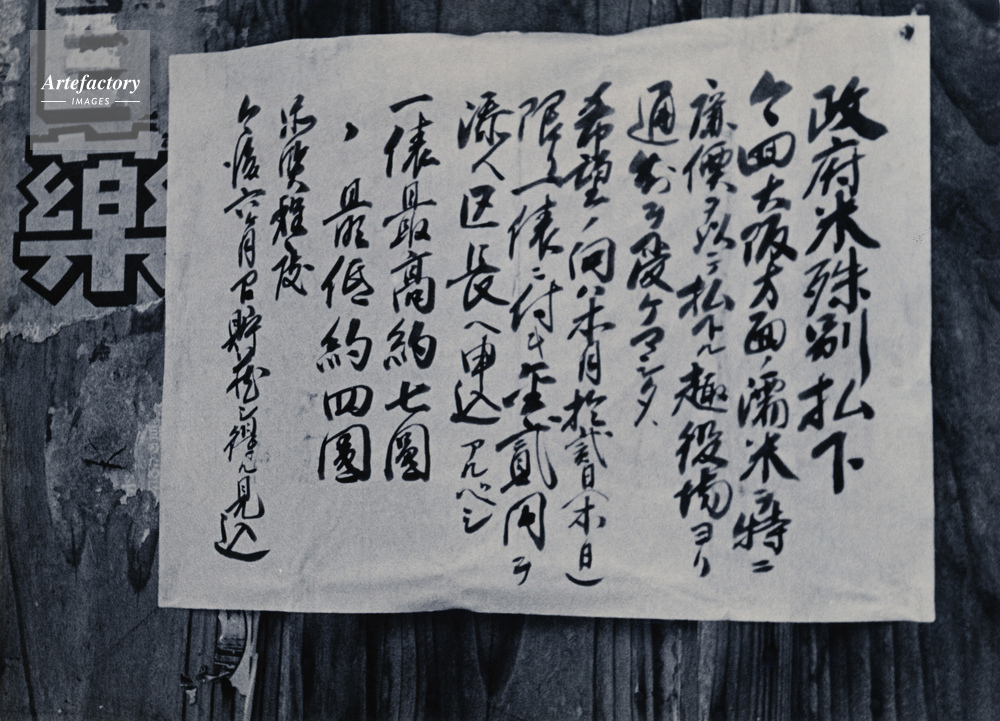 政府米殊別払下
今回大阪方面ノ濡米ヲ特ニ
廉價ヲ以テ払下ル趣役場ヨリ
通知ヲ受ケマシタ、
希望ノ向ハ本月拾貳日(本日)
限リ一俵ニ付キ金貳円ヲ
添ヘ区長ヘ申込アルベシ
一俵最高約七圓
、最低約四圓
米質程度
今後六ヶ月日貯蔵シ得ル見込
樂
Artefactory
IMAGES